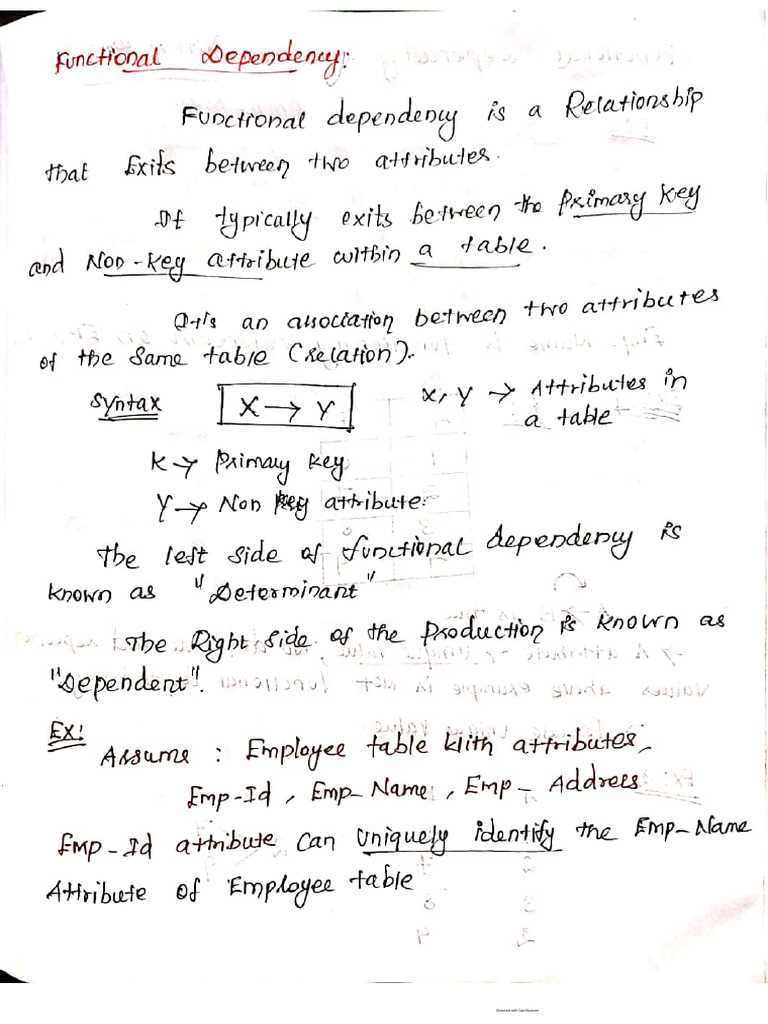 Functional Dependency:
Functional dependency is a Relationship
that Exits between two attributes.
It typically exits between the Primary key
and Non-key attribute within a table.
It is an association between two attributes
of the same table (relation).
Syntax X → Y x, y → Attributes in
a table
X → Primary key
Y → Non key attribute.
The left side of functional dependency is
known as "Determinant"
The Right side of the Production is known as
"Dependent".
Ex:
Assume : Employee table with attributes,
Emp-Id , Emp_Name , Emp_ Address
Emp-Id attribute can uniquely identify the Emp_Name
Attribute of Employee table
Scanned with CamScanner